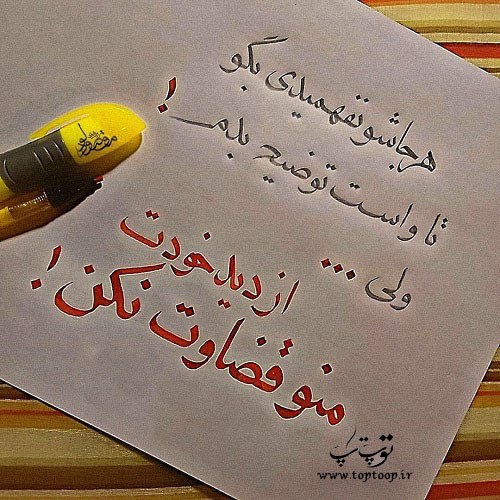 هرجاشو نفهمیدی بگو
تا واست توضیح بدم !
ولی ...
از دید خودت
منو قضاوت نکن !
توپ تاپ
www.toptoop.ir